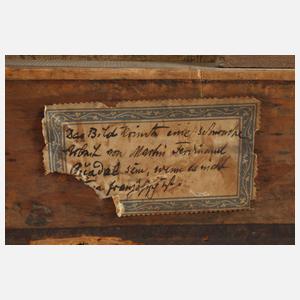 Das Bild könnte eine schwache
Arbeit von Martin Ferdinand
Quadal sein, wenn es nicht
französisch ist.